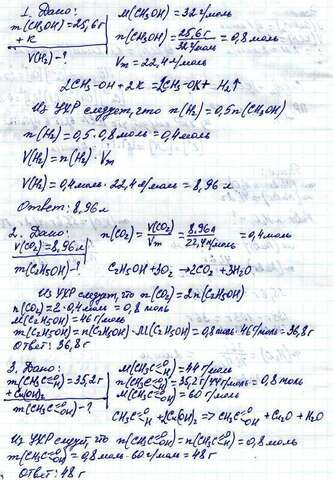 1. Дано:
m(CH₃OH)=25,6 г
+ K
V(H₂) - ?
M(CH₃OH) = 32 г/моль
n(CH₃OH) = 25,6 г / 32 г/моль = 0,8 моль
Vm = 22,4 л/моль
2CH₃-OH + 2K = 2CH₃-OK + H₂↑
Из УХР следует, что n(H₂) = 0,5n(CH₃OH)
n(H₂) = 0,5 · 0,8 моль = 0,4 моль
V(H₂) = n(H₂) · Vm
V(H₂) = 0,4 моль · 22,4 л/моль = 8,96 л
Ответ: 8,96 л
2. Дано:
V(CO₂) = 8,96 л
m(C₂H₅OH) - ?
n(CO₂) = V(CO₂) / Vm = 8,96 л / 22,4 л/моль = 0,4 моль
C₂H₅OH + 3O₂ → 2CO₂ + 3H₂O
Из УХР следует, что n(CO₂) = 2n(C₂H₅OH)
n(CO₂) = 2 · 0,4 моль = 0,8 моль
M(C₂H₅OH) = 46 г/моль
m(C₂H₅OH) = n(C₂H₅OH) · M(C₂H₅OH) = 0,8 моль · 46 г/моль = 36,8 г
Ответ: 36,8 г
3. Дано:
m(CH₃C=O H) = 35,2 г
+ Cu(OH)₂
m(CH₃C=O OH) - ?
M(CH₃C=O H) = 44 г/моль
n(CH₃C=O H) = 35,2 г / 44 г/моль = 0,8 моль
M(CH₃C=O OH) = 60 г/моль
CH₃C=O H + 2Cu(OH)₂ => CH₃C=O OH + Cu₂O + H₂O
Из УХР следует, что n(CH₃C=O OH) = n(CH₃C=O H) = 0,8 моль
m(CH₃C=O OH) = 0,8 моль · 60 г/моль = 48 г
Ответ: 48 г